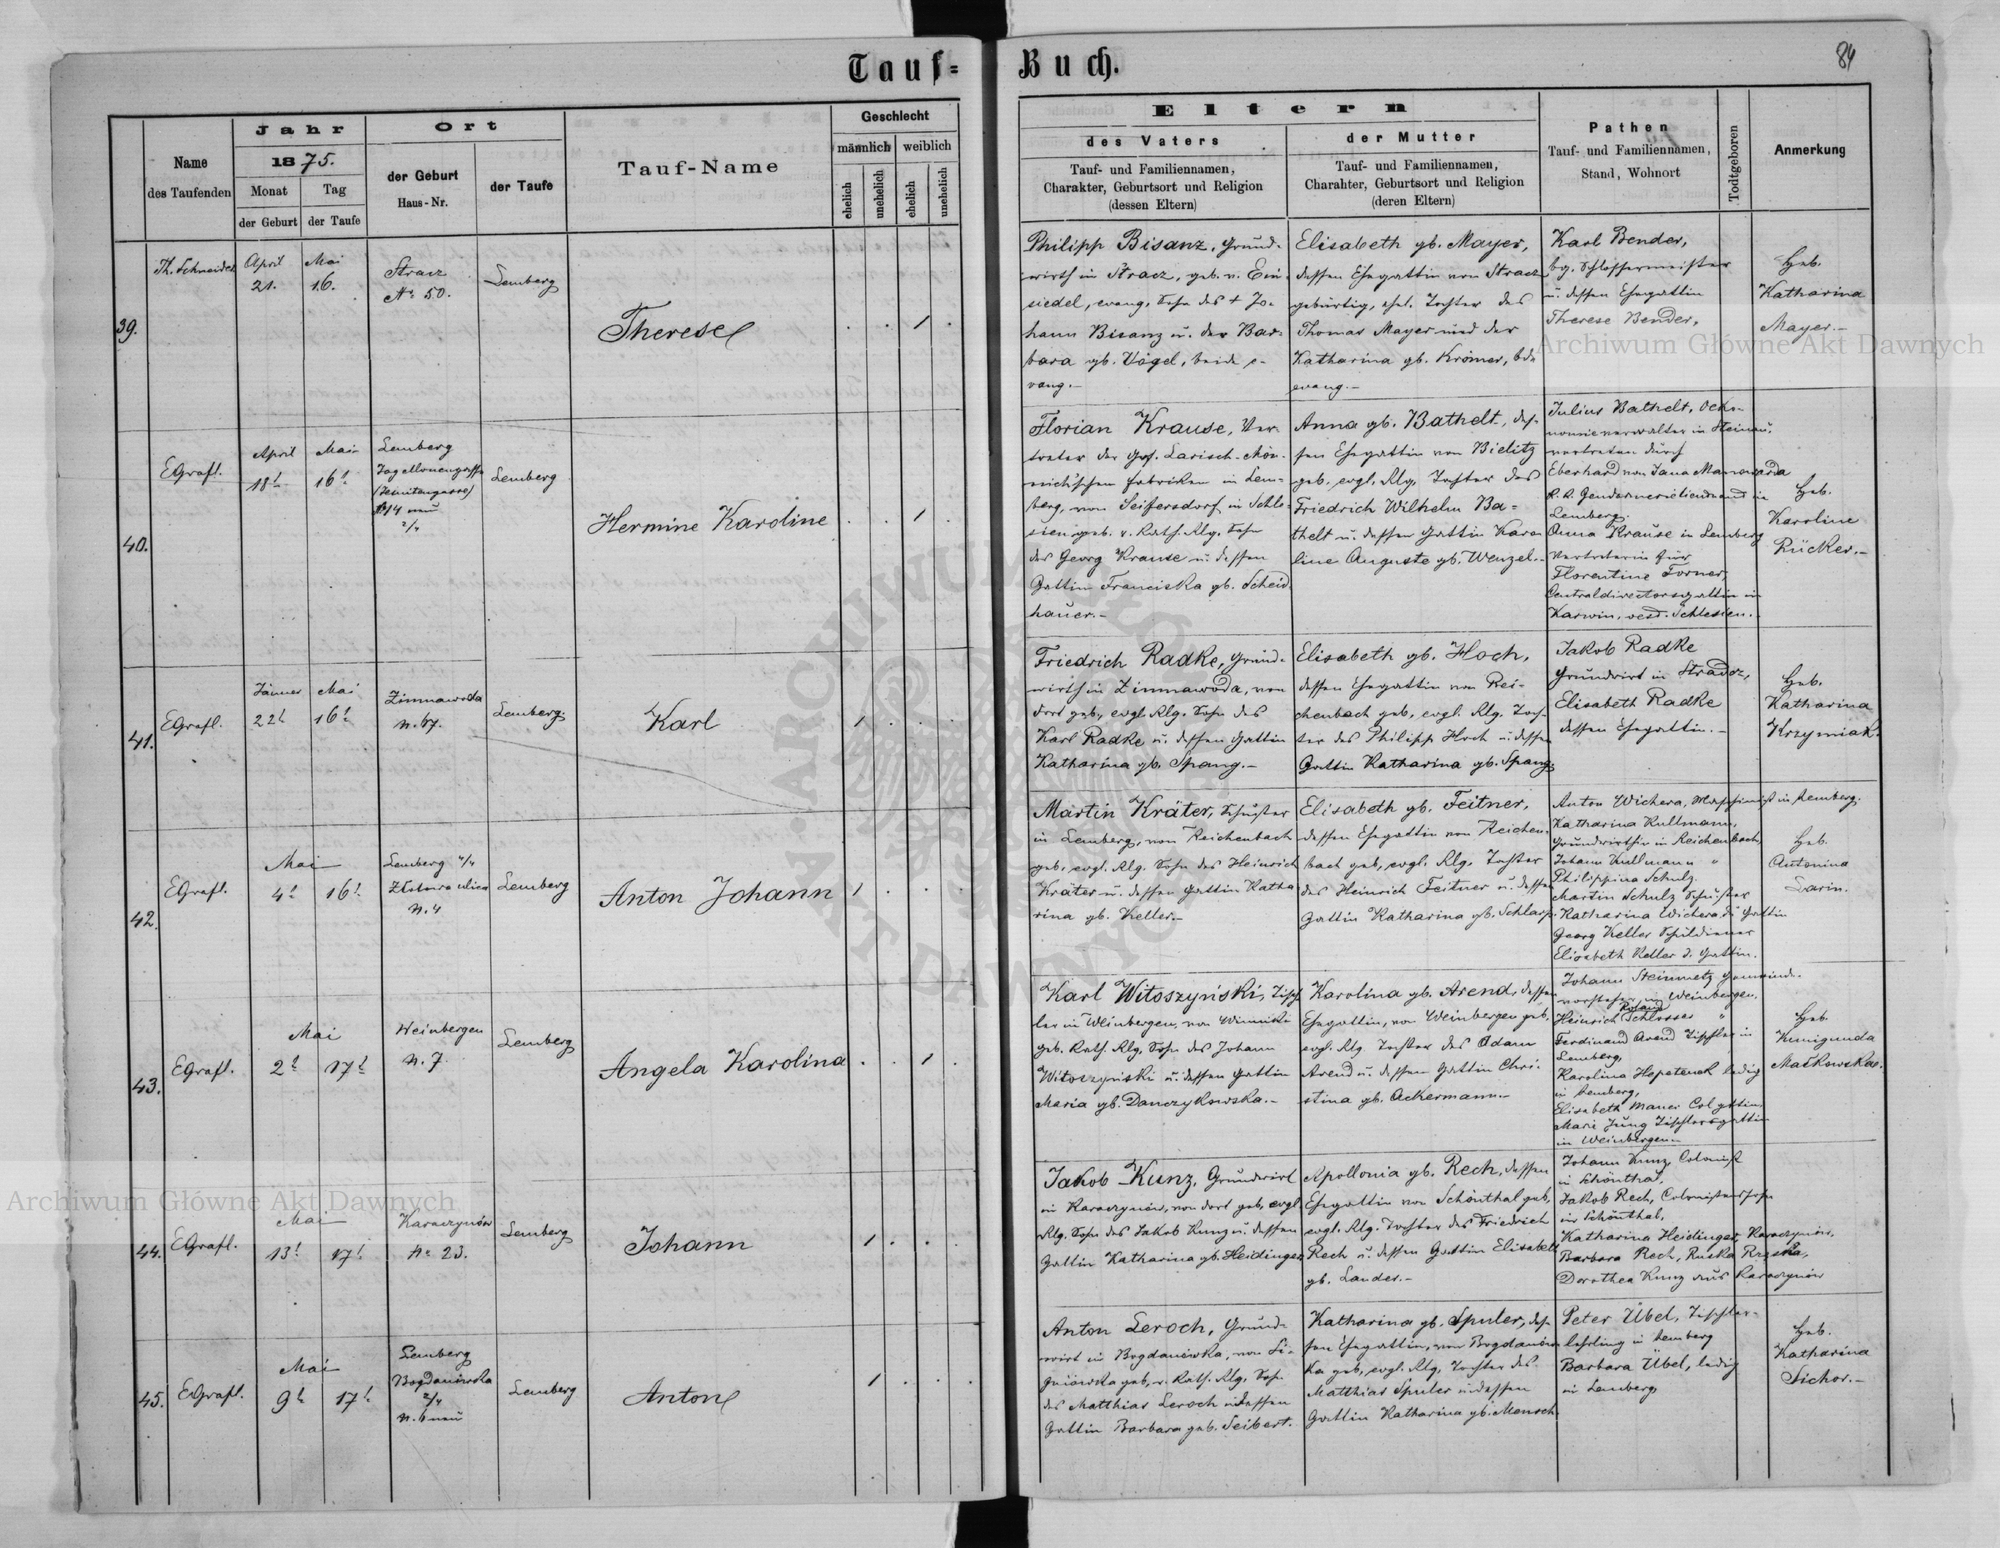 Tauf-Buch.
84
Name
des Taufenden
Jahr
1875.
Monat
der Geburt
Tag
der Taufe
Ort
der Geburt
Haus-Nr.
der Taufe
Tauf-Name
Geschlecht
männlich
weiblich
ehelich
unehelich
ehelich
unehelich
Eltern
des Vaters
Tauf- und Familiennamen,
Charakter, Geburtsort und Religion
(dessen Eltern)
der Mutter
Tauf- und Familiennamen,
Charahter, Geburtsort und Religion
(deren Eltern)
Pathen
Tauf- und Familiennamen,
Stand, Wohnort
Todtgeboren
Anmerkung
39.
Th. Schneider
April
21.
Mai
16.
Stracz
No 50.
Lemberg
Therese
Philipp Bisanz, Grund-
wirth in Stracz, geb. v. Ein
siedel, evang. Sohn des + Jo-
hann Bisanz u. der Bar-
bara gb. Vogel, beide e-
vang.-
Elisabeth gb. Mayer,
dessen Ehegattin von Stracz
gebürtig, ehel. Tochter des
Thomas Mayer und der
Katharina gb. Krömer, bde
evang.-
Karl Bender,
bg. Schlossermeister
u. dessen Ehegattin
Therese Bender,
Heb.
Katharina
Mayer.-
40.
EGrafl.
April
18t
Mai
16t
Lemberg
Jagellonengasse
(Jesuitengasse)
No 14 neu
2/4
Lemberg
Hermine Karoline
Florian Krause, Ver-
treter der Larisch-Mön-
nich'schen Fabriken in Lem-
berg, von Seifersdorf in Schle-
sien geb. r. Kath. Rlg. Sohn
des Georg Krause u. dessen
Gattin Franciska gb. Scheid
hauer.-
Anna gb. Bathelt, des-
sen Ehegattin von Bielitz
geb. evgl. Rlg, Tochter des
Friedrich Wilhelm Ba-
thelt u. dessen Gattin Karo
line Auguste gb. Wenzel.-
Julius Bathelt, Oeko-
nomieverwalter in Steinau,
vertreten durch
Eberhard von
k. k. in
Lemberg.
Anna Krause in Lemberg
Vertreterin für
Florentine Forner,
Centraldirectorsgattin in
Karwin, oest. Schlesien.
Heb.
Karoline
Rücker.-
41.
EGrafl.
Jänner
22t
Mai
16t
Zimnawoda
N. 67.
Lemberg.
Karl
Friedrich Radke, Grund-
wirth in Zimnawoda, von
dort geb, evgl. Rlg. Sohn des
Karl Radke u. dessen Gattin
Katharina gb. Spang.-
Elisabeth gb. Hoch,
dessen Ehegattin von Rei-
chenbach geb, evgl. Rlg. Toch-
ter des Philipp Hoch u. dessen
Gattin Katharina gb. Spang.
Jakob Radke
Grundwirt in
Elisabeth Radke
dessen Ehegattin.-
Heb.
Katharina
Krzyniak.
42.
EGrafl.
Mai
4t
16t
Lemberg 4/4
Zlotna ulica
N. 4
Lemberg
Anton Johann
Martin Kräter, Schuster
in Lemberg, von Reichenbach
geb, evgl. Rlg. Sohn des Heinrich
Kräter u. dessen Gattin Katha
rina gb. Keller.-
Elisabeth gb. Feitner,
dessen Ehegattin von Reichen-
bach geb, evgl. Rlg. Tochter
des Heinrich Feitner u. dessen
Gattin Katharina gb. Schlarp.
Anton Wichera, Maschinist in Lemberg.
Katharina Kullmann,
Grundwirthin in Reichenbach,
Johann Kullmann "
Philippina Schulz.
Martin Schulz Schuster
Katharina Wichera, d. Gattin
Georg Keller Schuldiener
Elisabeth Keller d. Gattin.
Heb.
Antonina
Larin.
43.
EGrafl.
Mai
2t
17t
Weinbergen
N. 7.
Lemberg
Angela Karolina
Karl Witoszyński, Tisch
ler in Weinbergen, von Winniki
geb. Kath. Rlg, Sohn des Johann
Witoszyński u. dessen Gattin
Maria gb. Danczykowska.-
Karolina gb. Arend, dessen
Ehegattin, von Weinbergen geb.
evgl. Rlg Tochter des Adam
Arend u. dessen Gattin Chri-
stina gb. Ackermann.-
Johann Steinmetz Gemeinde-
vorsteher in Weinbergen,
Roland
Heinrich Schlosser "
Ferdinand Arend Tischler in
Lemberg,
Karolina Hepeteuck ledig
in Lemberg,
Elisabeth Mauer Col gattin,
Marie Jung Tischlersgattin
in Weinbergen.-
Heb.
Kunigunda
Maćkowska.
44.
EGrafl.
Mai
13t
17t
Karaczynów
No 23.
Lemberg
Johann
Jakob Kunz, Grundwirt
in Karaczynów, von dort geb, evgl
Rlg. Sohn des Jakob Kunz u. dessen
Gattin Katharina gb. Heidinger
Apollonia gb. Rech, dessen
Ehegattin von Schönthal geb,
evgl. Rlg. Tochter des Friedrich
Rech u. dessen Gattin Elisabeth
gb. Lander.-
Johann Kunz, Colonist
in Schönthal,
Jakob Rech, Colonistenssohn
in Schönthal,
Katharina Heidinger Karaczynów,
Barbara Rech, Ruska
Dorothea Kunz aus Karaczynów
45.
EGrafl.
Mai
9t
17t
Lemberg
Bogdanówka
2/4
N. 6 neu
Lemberg
Anton
Anton Leroch, Grund-
wirt in Bogdanówka, von Li-
gniówka geb, r. Kath. Rlg. Sohn
des Matthias Leroch u dessen
Gattin Barbara geb. Seibert.
Katharina gb. Spuler, des-
sen Ehegattin, von Bogdanów
ka geb, evgl. Rlg, Tochter des
Matthias Spuler u dessen
Gattin Katharina gb. Mensch.
Peter Übel, Tischler-
lehrling in Lemberg
Barbara Übel, ledig
in Lemberg
Heb.
Katharina
Sichor.-
Archiwum Główne Akt Dawnych
Archiwum Główne Akt Dawnych